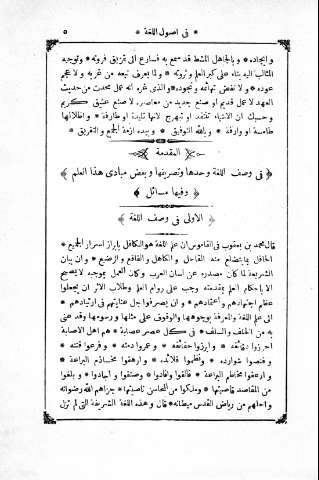 ﴿ في اصول اللغة ﴾ ٥
و ايجاده * و بالجاهل المشط قد سمع به فسارع الى تمزيق فروته * وتوجيه
المثالب اليه بناء على كبر العلم و ثروته * و ما يعرف نبعه من غربه و لا عجم
عوده * و لا نفض تهائمه و نجوده * والذي غره انه عمل محدث من حديث
العهد لا عمل قديم او صنع جديد من معاصره لا صنع عتيق كريم
و حسبك ان الاشياء تنتقد او تبهرج لانها تليدة او طارفة * و اطلالها
طامسة او وارفة * و بالله التوفيق * و بيده ازمة الجمع و التفريق *
﴿ المقدمة ﴾
﴿ في وصف اللغة وحدها وتصريفها وبعض مبادى هذا العلم ﴾
﴿ وفيها مسائل ﴾
﴿ الاولى في وصف اللغة ﴾
قال محمد بن يعقوب في القاموس ان علم اللغة هو الكافل بابراز اسرار الجميع *
الحافل بما يتضلع منه القاحل و الكاهل و الفاقع و الرضيع * و ان بيان
الشريعة لما كان مصدره عن لسان العرب وكان العمل بموجبه لا يصح
الا باحكام العلم بمقدمته وجب على روام العلم وطلاب الاثر ان يجعلوا
عظم اجتهادهم و اعتمادهم * و ان يصرفوا جل عنايتهم في ارتيادهم *
الى علم اللغة والمعرفة بوجوهها والوقوف على مثلها و رسومها وقد عنى
به من الخلف والسلف * في كل عصر عصابة * هم اهل الاصابة
احرزوا دقائقه * و ابرزوا حقائقه * و عمروا دمنه * و فرعوا قننه *
و قنصوا شوارده * و نظموا قلائده * و ارهفوا مخاذم البراعة *
و ارعفوا مخاطم اليراعة * فالفوا وافادوا * و صنفوا و اجادوا * و بلغوا
من المقاصد قاصيتها * وملكوا من المحاسن ناصيتها * جزاهم الله رضوانه
و احلهم من رياض القدس ميطانه * قال و هذه اللغة الشريفة التي لم تزل